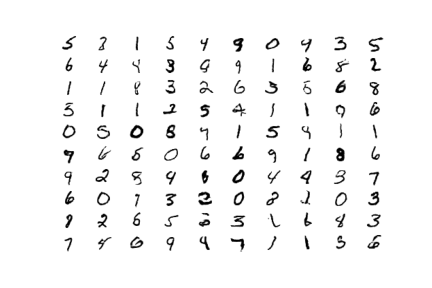 5 3 1 5 4 9 0 9 3 5
6 4 4 3 9 9 1 6 8 2
1 1 8 3 2 6 3 5 6 8
3 1 1 2 5 4 1 1 9 6
0 5 0 8 7 1 5 4 1 1
9 6 5 0 6 6 9 1 8 6
9 2 8 4 6 0 4 4 3 7
6 0 7 3 2 0 8 1 0 3
9 2 6 5 5 3 1 6 8 3
7 4 0 9 4 7 1 1 3 6